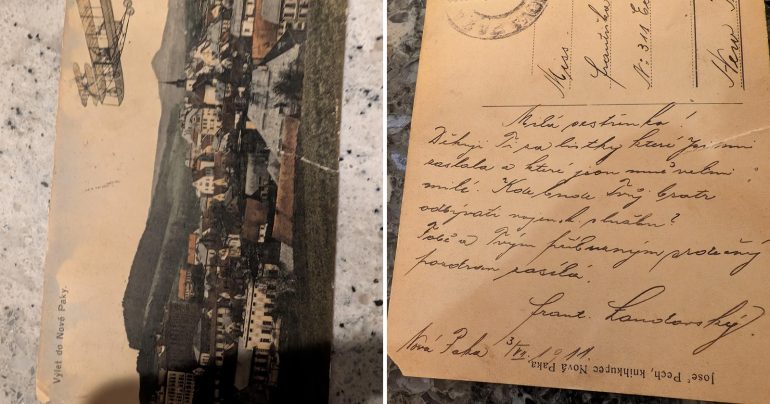 Výlet do Nové Paky.
Miss
Františka
No 311 Ea
New
Milá sestřenko!
Děkuji Ti za lístky které jsi mi
zaslala a které jsou mně velmi
milé. Kde bude Tvůj bratr
odbývati vojensk službu?
Tobě a Tvým příbuzným srdečný
pozdrav zasílá.
Frant. Landovský.
Nová Paka 3/VI. 1911.
Josef Pech, knihkupec Nová Paka